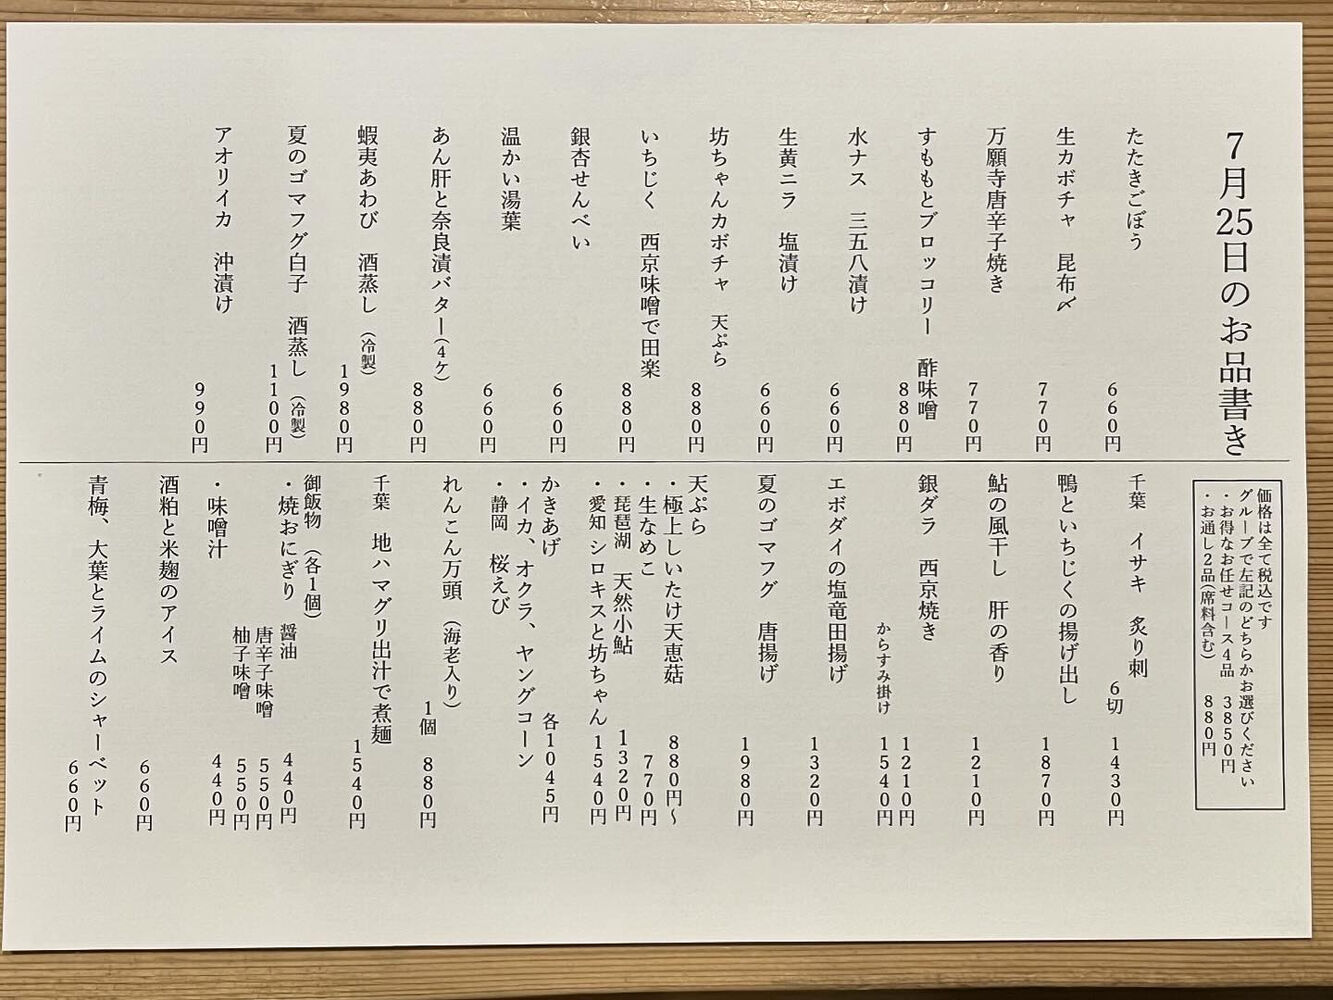 7月25日のお品書き
たたきごぼう
660円
生カボチャ 昆布〆
770円
万願寺唐辛子焼き
770円
すももとブロッコリー 酢味噌
880円
水ナス 三五八漬け
660円
生黄ニラ 塩漬け
660円
坊ちゃんカボチャ 天ぷら
880円
いちじく 西京味噌で田楽
880円
銀杏せんべい
660円
温かい湯葉
660円
あん肝と奈良漬バター(4ケ)
880円
蝦夷あわび 酒蒸し(冷製)
1980円
夏のゴマフグ白子 酒蒸し(冷製)
1100円
アオリイカ 沖漬け
990円
価格は全て税込です
グループで左記のどちらかお選びください
・お得なお任せコース4品 3850円
・お通し2品(席料含む) 880円
千葉 イサキ 炙り刺
6切 1430円
鴨といちじくの揚げ出し
1870円
鮎の風干し 肝の香り
1210円
銀ダラ 西京焼き
1210円
からすみ掛け 1540円
エボダイの塩竜田揚げ
1320円
夏のゴマフグ 唐揚げ
1980円
天ぷら
・極上しいたけ天恵菇 880円~
・生なめこ 770円
・琵琶湖 天然小鮎 1320円
・愛知 シロキスと坊ちゃん 1540円
かきあげ 各1045円
・イカ、オクラ、ヤングコーン
・静岡 桜えび
れんこん万頭 (海老入り)
1個 880円
千葉 地ハマグリ出汁で煮麺
1540円
御飯物 (各1個)
・焼おにぎり 醤油 440円
唐辛子味噌 550円
柚子味噌 550円
・味噌汁 440円
酒粕と米麹のアイス
660円
青梅、大葉とライムのシャーベット
660円